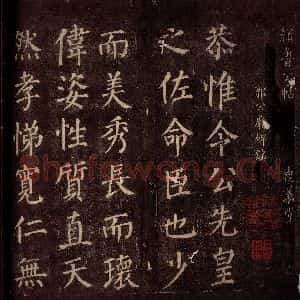 郭公廟碑銘
恭惟令公先皇
之佐命臣也少
而美秀長而瓌
偉姿性質直天
然孝悌寬仁無
Shufawang.CN